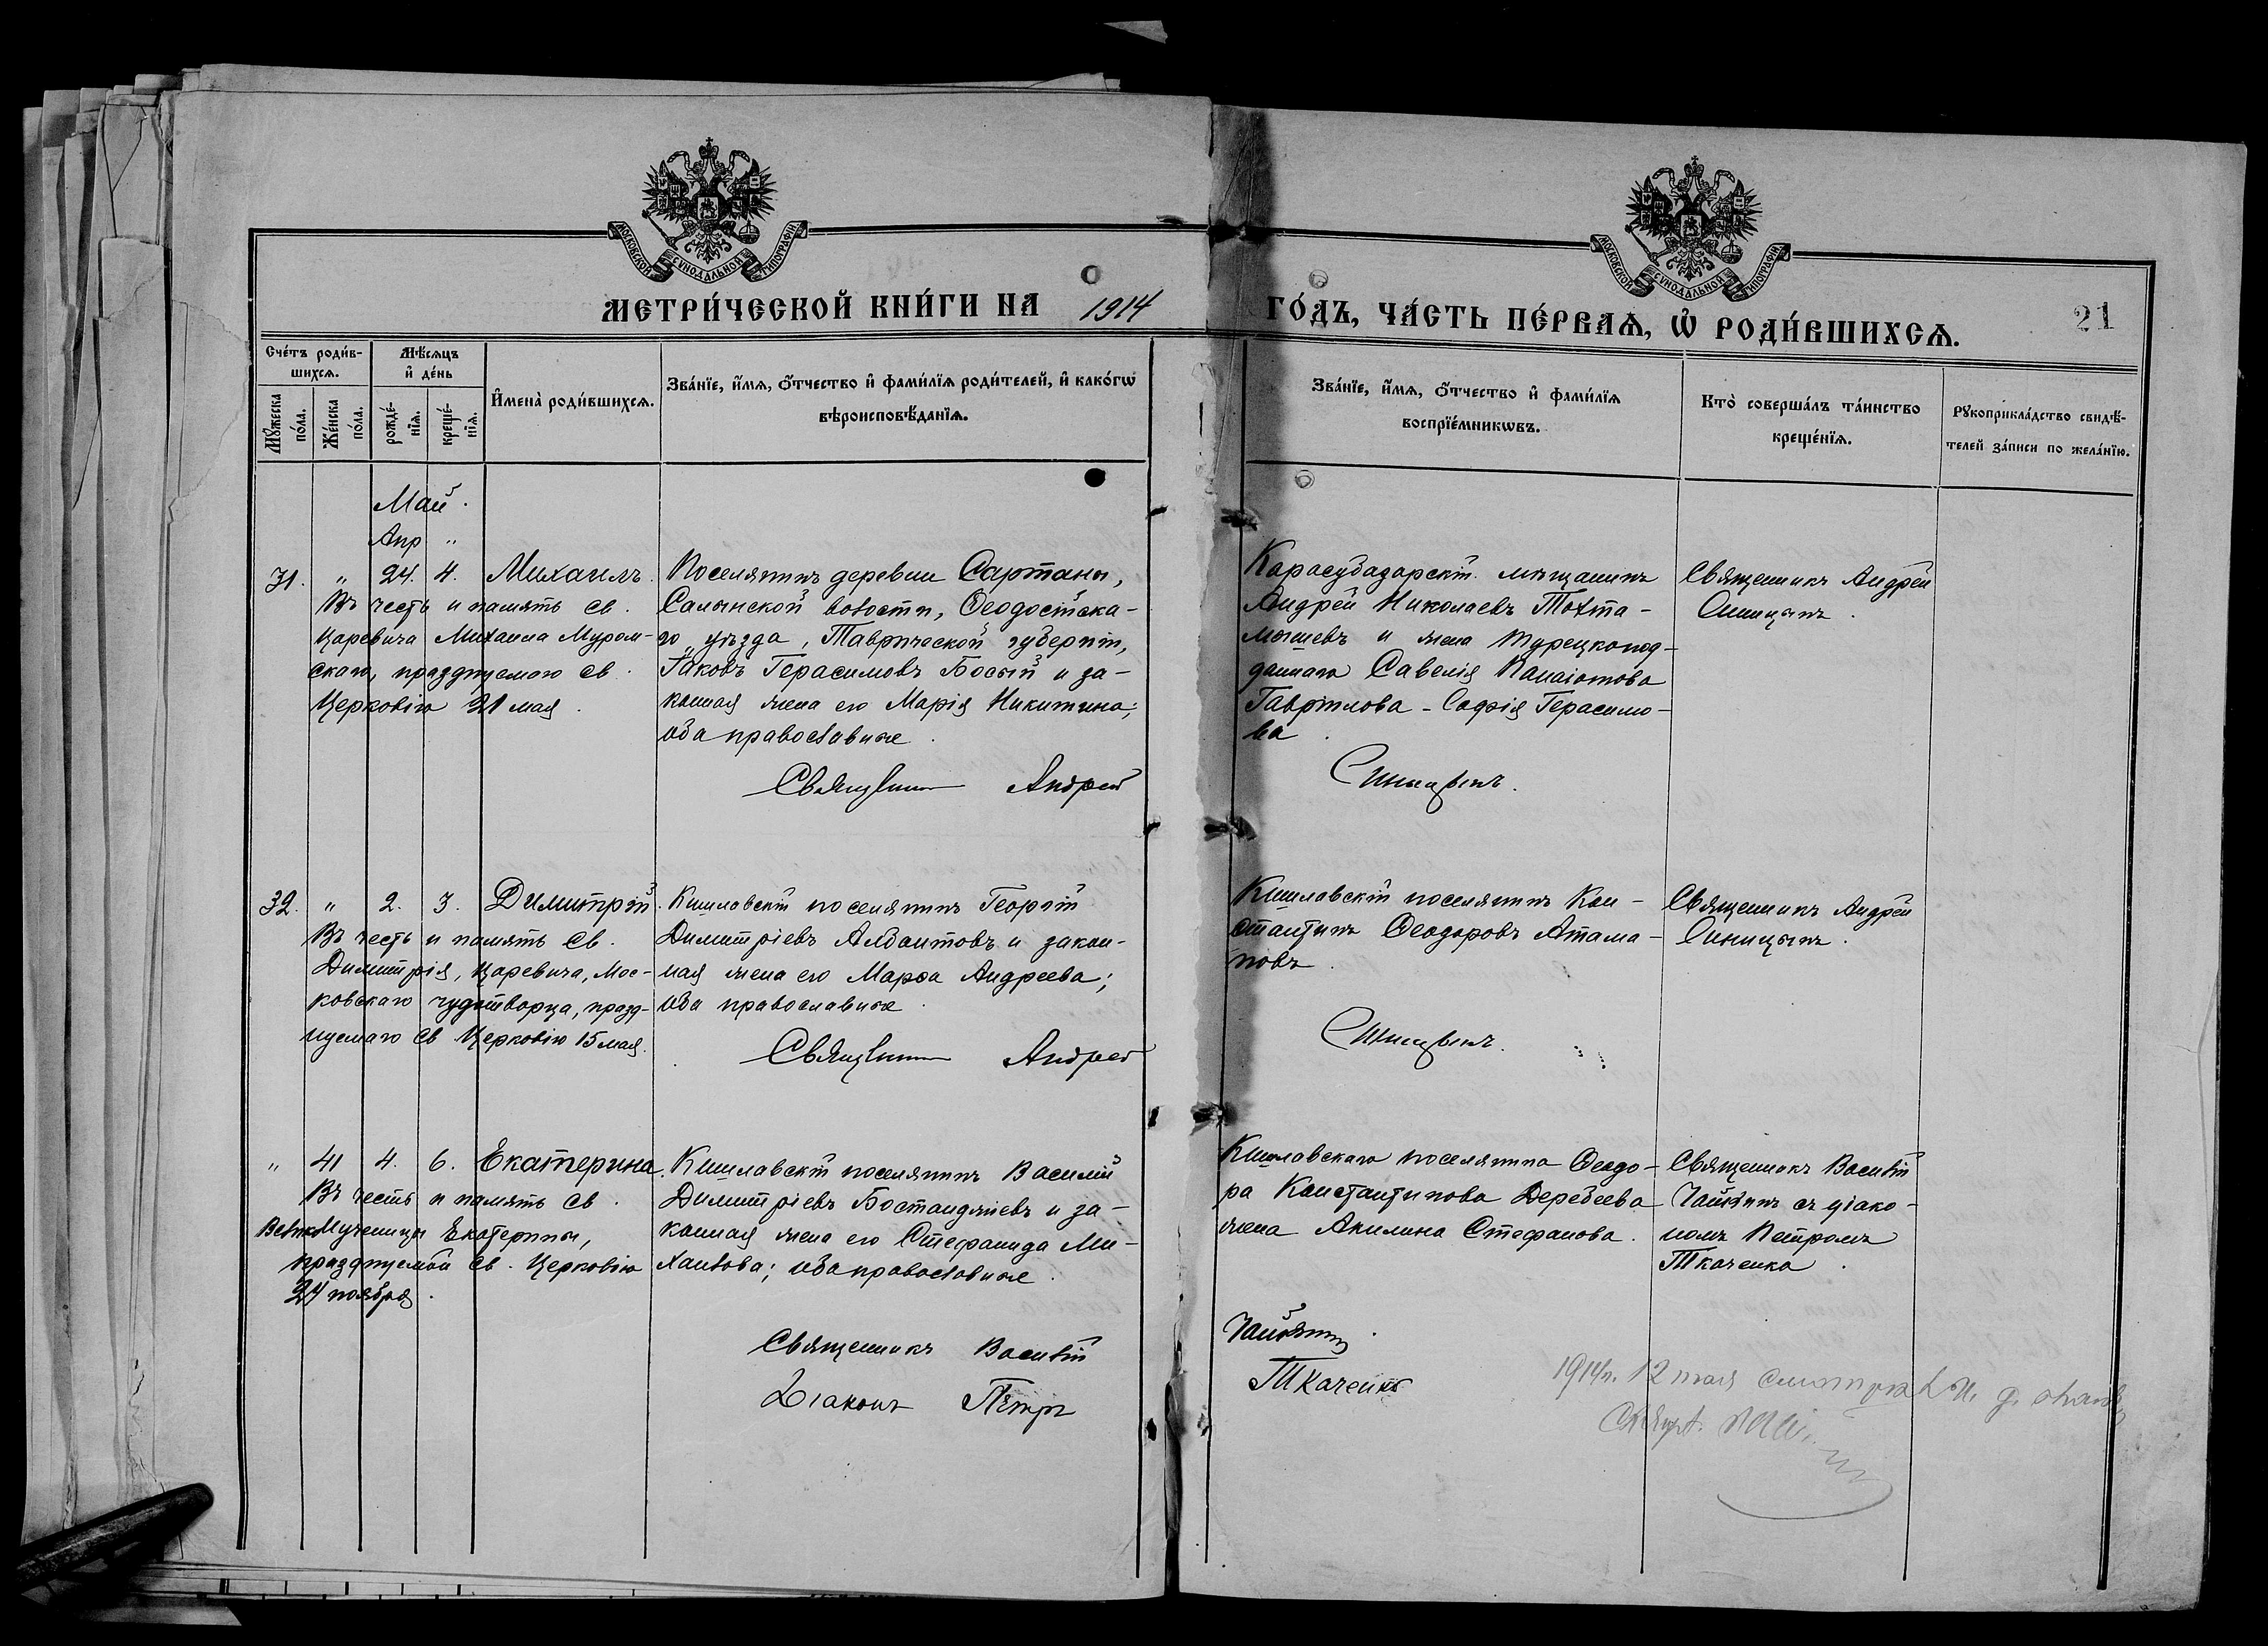 МОСКОВСКОЙ СѴНОДАЛЬНОЙ ТИПОГРАФІИ
МОСКОВСКОЙ СѴНОДАЛЬНОЙ ТИПОГРАФІИ
МЕТРИ́ЧЕСКОЙ КНИ́ГИ НА 1914 ГО́ДЪ, ЧА́СТЬ ПЕ́РВАѦ, Ѡ РОДИ́ВШИХСѦ.
21
Сче́тъ роди́в-
шихсѧ.
Мѣ́сѧцъ
и҆ де́нь
Мꙋ́жеска
по́ла.
Же́нска
по́ла.
рожде́-
нїѧ.
креще́-
нїѧ.
И҆мена̀ роди́вшихсѧ.
Зва́нїе, и҆́мѧ, ѻ҆́тчество и҆ фами́лїѧ роди́телей, и҆ како́гѡ
вѣроисповѣ́данїѧ.
Зва́нїе, и҆́мѧ, ѻ҆́тчество и҆ фами́лїѧ
воспрїе́мникѡвъ.
Кто̀ соверша́лъ та́инство
креще́нїѧ.
Рꙋкоприкла́дство свидѣ́-
телей за́писи по жела́нїю.
Май.
Апр "
31. " 24. 4. Михаилъ.
Въ честь и память св.
Царевича Михаила Муром-
скаго, празднуемаго св.
Церковію 21 мая.
Поселянинъ деревни Сартаны,
Салынской волости, Ѳеодосійска-
го уѣзда, Таврической губерніи,
Іаковъ Герасимовъ Босый и за-
конная жена его Марія Никитина;
оба православные.
Священникъ Андрей
Карасубазарскій мѣщанинъ
Андрей Николаевъ Тохта-
мышевъ и жена турецкопод-
даннаго Савелія Панаіотова
Гавріилова - Софія Герасимо-
ва.
Синицынъ.
Священникъ Андрей
Синицынъ.
32. " 2. 3. Димитрій.
Въ честь и память св.
Димитрія, Царевича, Мос-
ковскаго чудотворца, празд-
нуемаго св Церковію 15 мая.
Кишлавскій поселянинъ Георгій
Димитріевъ Албантовъ и закон-
ная жена его Марѳа Андреева;
оба православные.
Священникъ Андрей
Кишлавскій поселянинъ Кон-
стантинъ Ѳеодоровъ Атама-
новъ.
Синицынъ.
Священникъ Андрей
Синицынъ.
" 41 4. 6. Екатерина.
Въ честь и память св.
Великомученицы Екатерины,
празднуемой св. Церковію
24 ноября.
Кишлавскій поселянинъ Василій
Димитріевъ Бостанджіевъ и за-
конная жена его Стефанида Ми-
хаилова; оба православные.
Священникъ Василій
Діаконъ Петръ
Кишлавскаго поселянина Ѳеодо-
ра Константинова Деребеева
жена Акилина Стефанова.
Чайкинъ.
Ткаченко
Священникъ Василій
Чайкинъ съ діако-
номъ Петромъ
Ткаченко.
1914 г. 12 мая смотрѣлъ И. д.